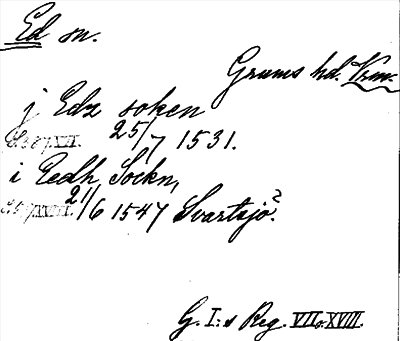 Ed sn.
Grums hd. Vrm.
j Edz soken
25/7 1531.
i Eedh Sockn,
21/6 1547 Svartsjö?
G. I:s Reg. VII o. XVIII.